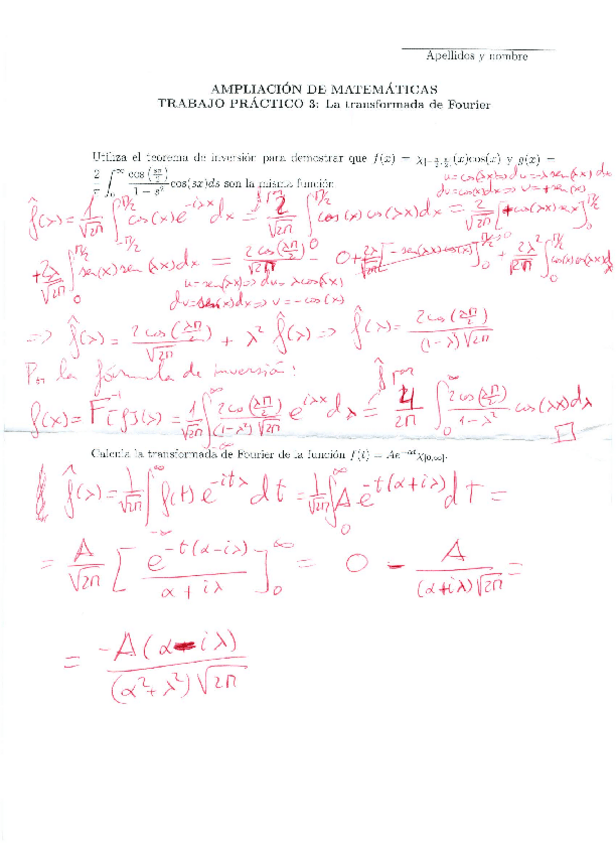 Apellidos y nombre
AMPLIACIÓN DE MATEMÁTICAS
TRABAJO PRÁCTICO 3: La transformada de Fourier
Utiliza el teorema de inversión para demostrar que f(x) = χ[-π/2, π/2](x)cos(x) y g(x) =
2/π ∫₀^∞ cos(sπ/2)/(1 − s²) cos(sx)ds son la misma función
u = cos(λx) → du = -λ sen(λx) dx
dv = cos(x)dx => v = + sen(x)
f̂(λ) = 1/√2π ∫_{-π/2}^{π/2} cos(x) e^{-iλx} dx = 2/√2π ∫₀^{π/2} cos(x) cos(λx) dx = 2/√2π [+cos(λx) senx]₀^{π/2}
+ 2λ/√2π ∫₀^{π/2} sen(x) sen(λx) dx = 2cos(λπ/2)/√2π − 0 + 2λ/√2π [−sen(λx) cos(x)]₀^{π/2} + 2λ²/√2π ∫₀^{π/2} cos(x) cos(λx) dx
u = sen(λx) => du = λcos(λx)
dv = sen(x)dx => v = -cos(x)
=> f̂(λ) = 2cos(λπ/2)/√2π + λ² f̂(λ) => f̂(λ) = 2cos(λπ/2)/(1-λ²)√2π
Por la fórmula de inversión:
f(x) = F⁻¹[f](λ) = 1/√2π ∫ 2cos(λπ/2)/(1-λ²)√2π e^{iλx} dλ = 4/2π ∫₀^∞ cos(λπ/2)/1-λ² cos(λx) dλ
□
Calcula la transformada de Fourier de la función f(t) = Ae^{-αt}χ[0,∞[.
f̂(λ) = 1/√2π ∫_{-∞}^{∞} f(t) e^{-itλ} dt = 1/√2π ∫₀^∞ A e^{-t(α+iλ)} dt =
= A/√2π [e^{-t(α-iλ)}/α+iλ]₀^∞ = 0 − A/(α+iλ)√2π =
= -A(α-iλ)/(α²+λ²)√2π